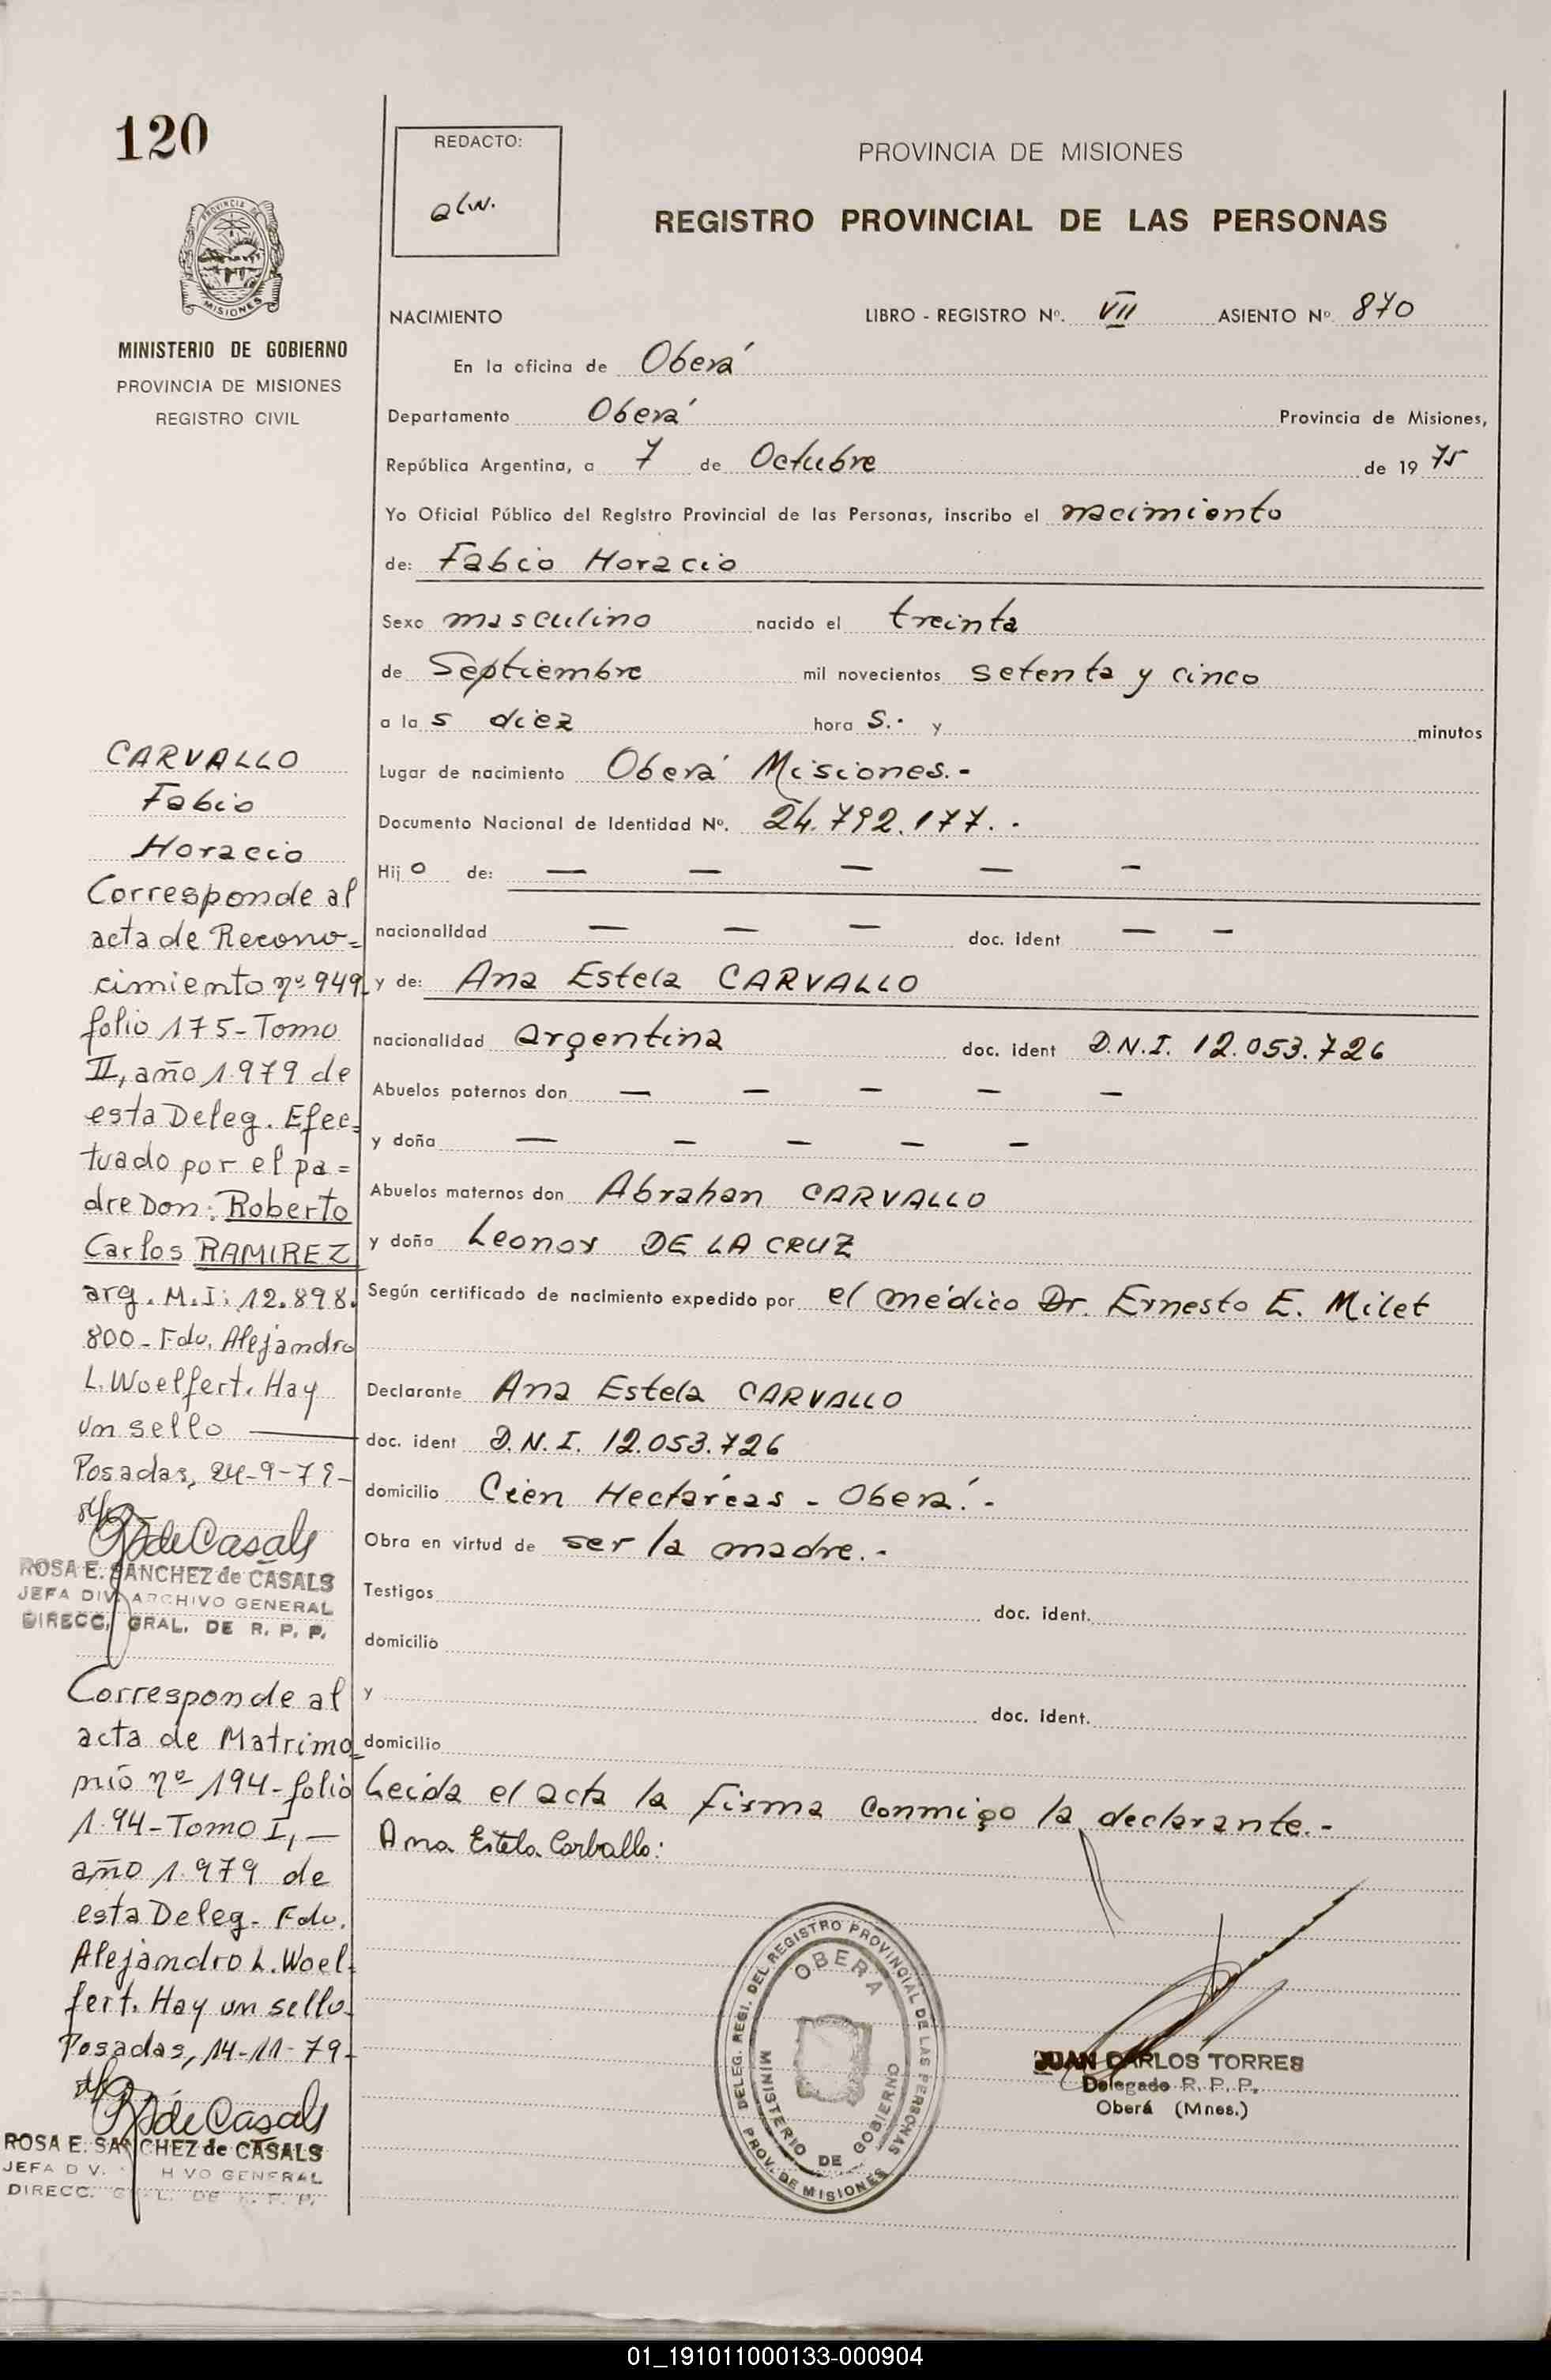 120
REDACTO:
alw.
PROVINCIA DE MISIONES
REGISTRO PROVINCIAL DE LAS PERSONAS
PROVINCIA DE
MISIONES
MINISTERIO DE GOBIERNO
PROVINCIA DE MISIONES
REGISTRO CIVIL
NACIMIENTO LIBRO - REGISTRO Nº. VII ASIENTO Nº 870
En la oficina de Oberá
Departamento Oberá Provincia de Misiones,
República Argentina, a 7 de Octubre de 1975
Yo Oficial Público del Registro Provincial de las Personas, inscribo el nacimiento
de: Fabio Horacio
Sexo masculino nacido el treinta
de Septiembre mil novecientos setenta y cinco
a las diez hora s.- y minutos
Lugar de nacimiento Oberá Misiones.-
Documento Nacional de Identidad Nº. 24.792.177.-
Hijo de: — — — — —
nacionalidad — — — doc. ident — —
y de: Ana Estela CARVALLO
nacionalidad argentina doc. ident D.N.I. 12.053.726
Abuelos paternos don — — — — —
y doña — — — — —
Abuelos maternos don Abrahan CARVALLO
y doña Leonor DE LA CRUZ
Según certificado de nacimiento expedido por el médico Dr. Ernesto E. Milet
Declarante Ana Estela CARVALLO
doc. ident D.N.I. 12.053.726
domicilio Cien Hectáreas - Oberá.-
Obra en virtud de ser la madre.-
Testigos doc. ident.
domicilio
y doc. ident.
domicilio
Leida el acta la firma conmigo la declarante.-
Ana Estela Carballo:
DELEG. REGI. DEL REGISTRO PROVINCIAL DE LAS PERSONAS
OBERA
MINISTERIO DE GOBIERNO
PROV. DE MISIONES
JUAN CARLOS TORRES
Delegado R. P. P.
Oberá (Mnes.)
CARVALLO
Fabio
Horacio
Corresponde al
acta de Recono=
cimiento nº 949
folio 175-Tomo
II, año 1.979 de
esta Deleg. Efec=
tuado por el pa=
dre Don: Roberto
Carlos RAMIREZ
arg. M.I: 12.898.
800- Fdo. Alejandro
L. Woelfert. Hay
un sello —
Posadas, 24-9-79-
RSdeCasals
ROSA E. SANCHEZ de CASALS
JEFA DIV. ARCHIVO GENERAL
DIRECC. GRAL. DE R. P. P.
Corresponde al
acta de Matrimo=
nio nº 194-folio
1.94-Tomo I, —
año 1.979 de
esta Deleg- Fdo.
Alejandro L. Woel=
fert. Hay un sello-
Posadas, 14-11-79-
RSdeCasals
ROSA E. SANCHEZ de CASALS
JEFA DIV. ARCHIVO GENERAL
DIRECC. GRAL. DE R. P. P.
01_191011000133-000904